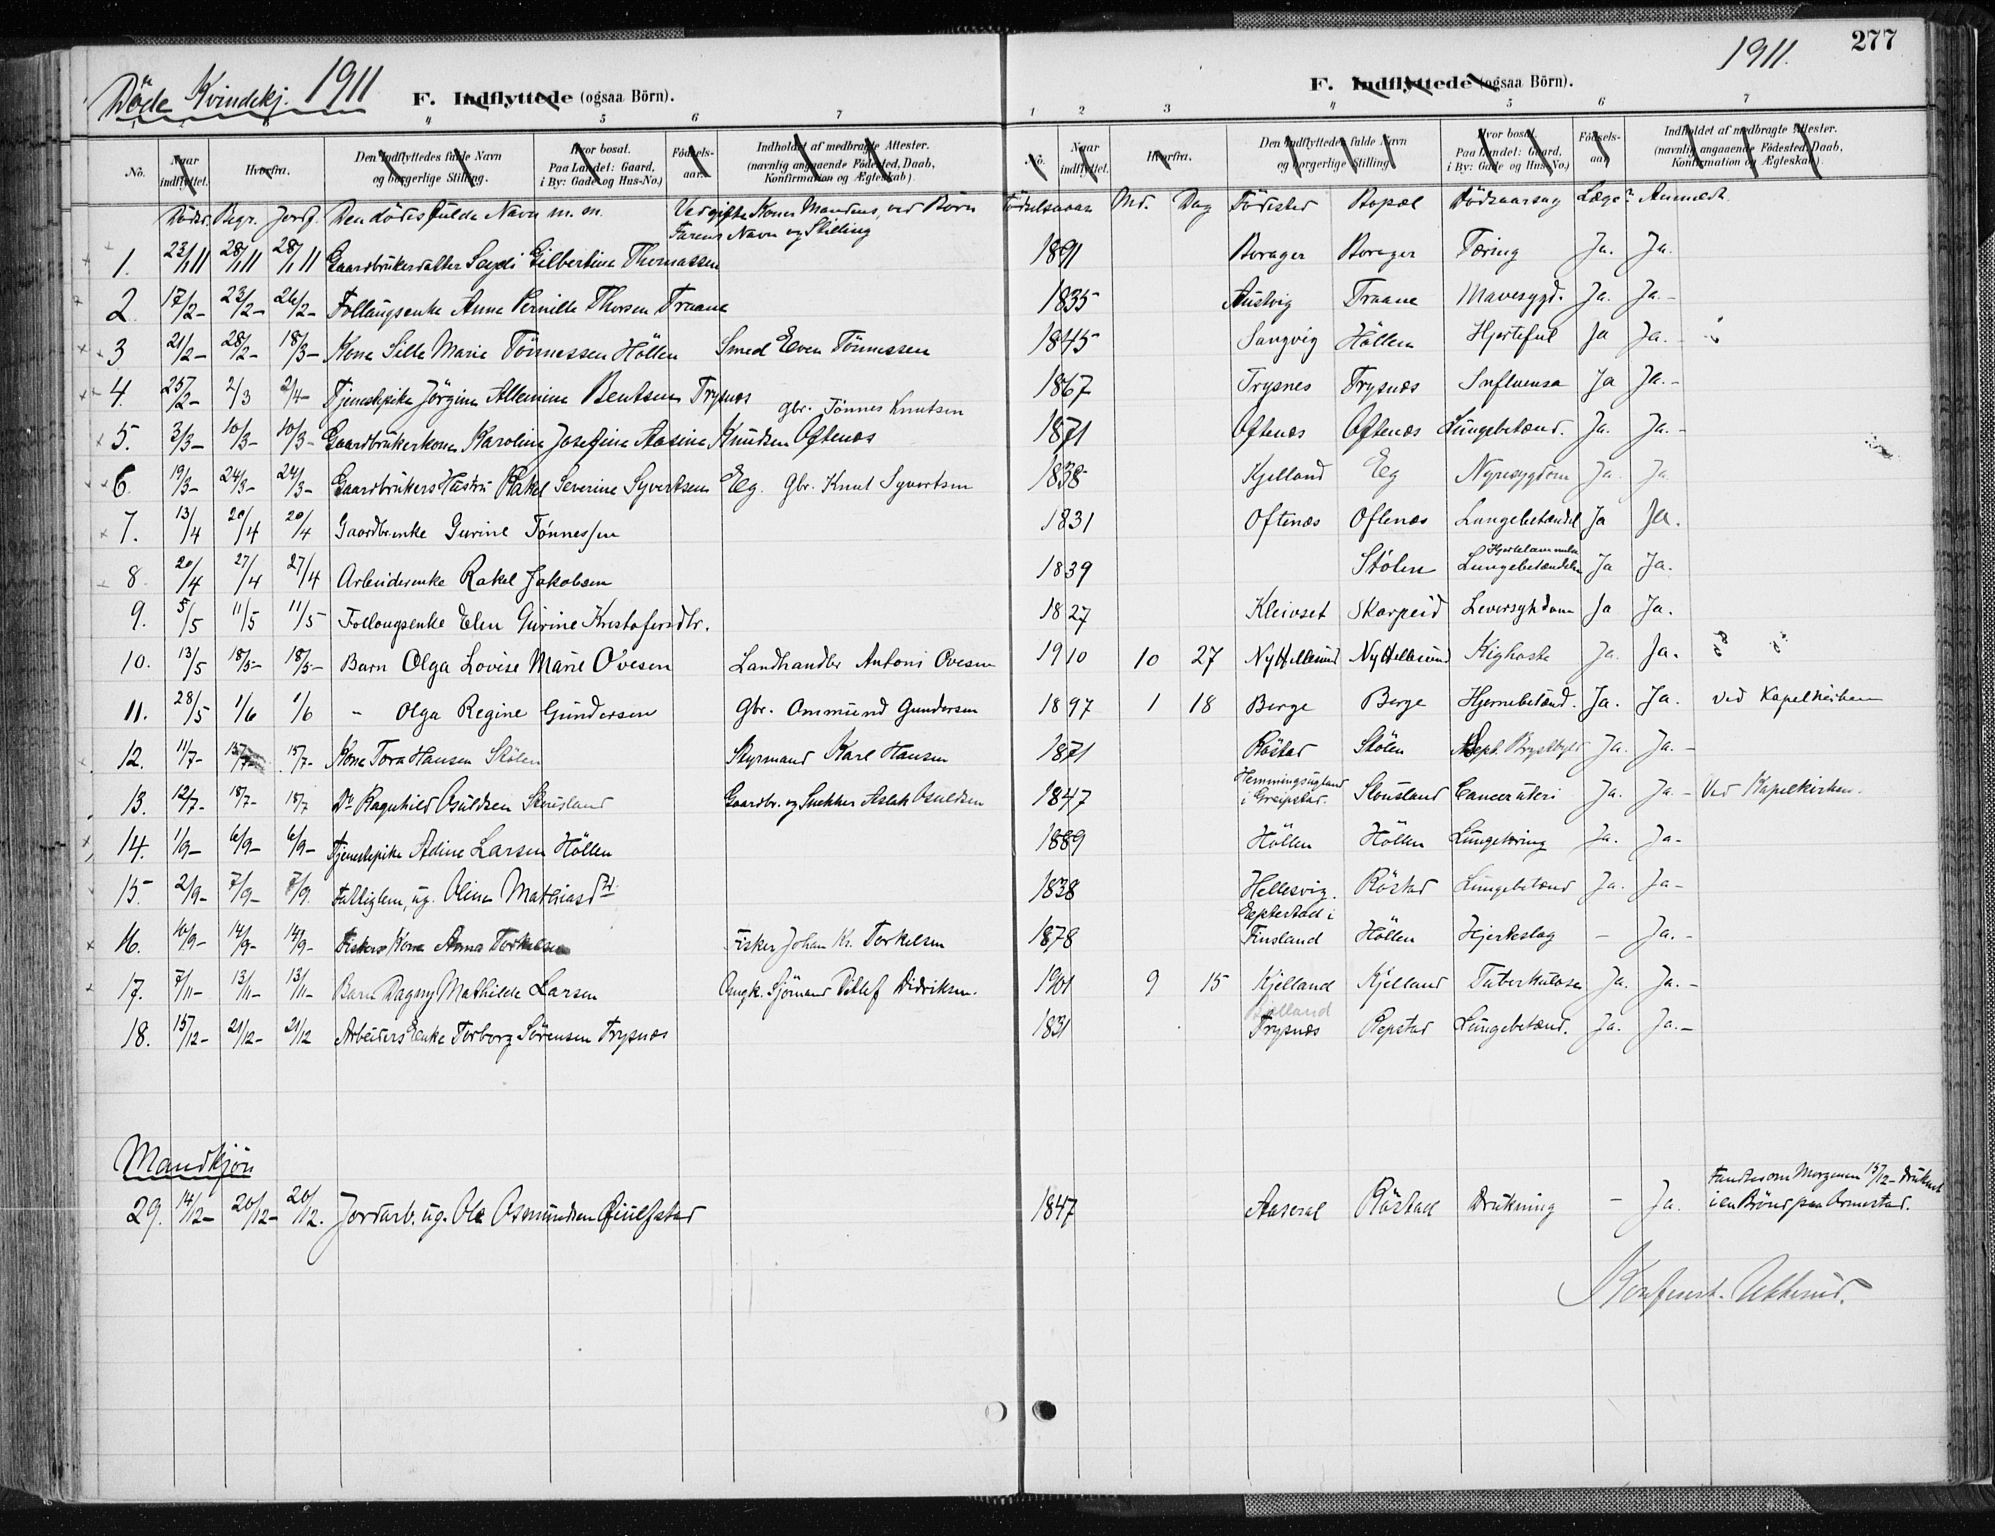 Døde Kvindekj. 1911
F. Indflyttede (ogsaa Börn).
F. Indflyttede (ogsaa Börn).
1911.
277
5 6 7 1 2 3 5 6 7
No. Naar indflyttet. Hvorfra. Den Indflyttedes fulde Navn og borgerlige Stilling. Hvor bosat. Paa Landet: Gaard, i By: Gade og Hus-No.) Födsels-aar. Indholdet af medbragte Attester. (navnlig angaaende Födested, Daab, Konfirmation og Ægteskab)
No. Naar indflyttet. Hvorfra. Den Indflyttedes fulde Navn og borgerlige Stilling. Hvor bosat. Paa Landet: Gaard, i By: Gade og Hus-No.) Födsels-aar. Indholdet af medbragte Attester. (navnlig angaaende Födested, Daab, Konfirmation og Ægteskab)
Döds. Begr. Jordf. Den dödes fulde Navn m. m. Ved gifte Koner Mandens, ved Börn Farens Navn og Stilling Födselsaar Md. Dag Födested Bopæl Dödsaarsag Læge? Anmeldt.
1. 23/1 11 28/1 11 28/1 11 Gaardbrukerdatter Gilbertine Thomassen 1891 Borager Borager Tæring Ja. Ja.
2. 17/2- 23/2- 26/2- Follaugsenke Anne Pernille Thorsen Traane 1835 Austvig Traane Mavesygd. Ja. Ja.-
3 21/2- 28/2- 18/3- Kone Sille Marie Tönnessen Höllen Smed Even Tönnessen 1845 Sangvig Höllen Hjertefeil Ja Ja.-
4. 25/2- 2/3 2/4- Tjenestpike Jörgine Allemine Bentsen Trysnes 1867 Trysnes Trysnes Influensa Ja Ja.-
5. 3/3- 10/3- 10/3- Gaardbrukerkone Karoline Josefine Aasine Knudsen Oftenæs Gbr. Tönnes Knutsen 1871 Oftenæs Oftenæs Lungebetænd. Ja. Ja.-
6. 19/3- 24/3- 24/3- Gaardbrukers Hustru Rakel Severine Syvertsen Eeg. Gbr. Knut Syvertsen 1838 Kjelland Eeg Nyresygdom Ja. Ja.
7. 13/4 20/4 20/4 Gaardbr.enke Gurine Tönnessen 1831 Oftenæs Oftenæs Lungebetændel Ja Ja.
8. 20/4 27/4 27/4 Arbeiderenke Rakel Jakobsen 1839 Stölen Lungebetændelse Ja Ja.
9. 5/5 11/5 11/5- Follaugsenke Elen Gurine Kristofersdtr. 1827 Kleivset Skarpeid Leversykdom Ja Ja.
10. 13/5 18/5- 18/5- Barn Olga Lovise Marie Ovesen Landhandler Antoni Ovesen 1910 10 27 Ny Hellesund Ny Hellesund Kighoste Ja. Ja.
11. 28/5 1/6 1/6 - Olga Regine Gundersen Gbr. Ommund Gundersen 1897 1 18 Berge Berge Hjernebetænd. Ja. Ja. Ved Kapelkirken
12. 11/7- 15/7- 15/7- Kone Tora Hansen Stölen Styrmand Karl Hansen 1871 Röstad Stölen Ja. Ja.-
13. 12/7- 18/7- 18/7 Do Ragnhild Osuldsen Stousland Gaardbr. og Snekker Aslak Osuldsen 1847 i Greipstad. Stousland Cancer uteri Ja. Ja.- Ved Kapelkirken.
14. 1/9- 6/9- 6/9- Tjenestepike Adine Larsen Höllen 1889 Höllen Höllen Lungetæring Ja. Ja-
15. 2/9- 7/9- 7/9. Fattiglem, ug. Oline Mathiasdtr. 1838 Hellesvig. Röstad Lungebetænd Ja. Ja-
16. 10/9- 14/9- 14/9- Fiskers Kone Anna Torkelsen Fisker Johan Kr. Torkelsen 1878 Eptestad i Finsland Höllen Hjerteslag - Ja.-
17. 7/11- 13/11- 13/11- Barn Dagny Mathilde Larsen Ungk. Sjömand Ditlef Didriksen. 1901 9 15 Kjelland Kjelland Tuberkulose Ja. Ja.-
18. 15/12- 21/12- 21/12 Arbeiders Enke Torborg Sörensen Trysnæs 1831 Bjelland Trysnæs Repstad Lungebetænd. Ja. Ja.-
Mandkjön
29. 14/12- 20/12- 20/12. Jordarb. ug. Ole Osmundsen 1847 Aaseral Röstad Drukning - Ja. Fandtes om Morgenen 15/12- druknet i en Brönd paa Ormestad.
Konferert.